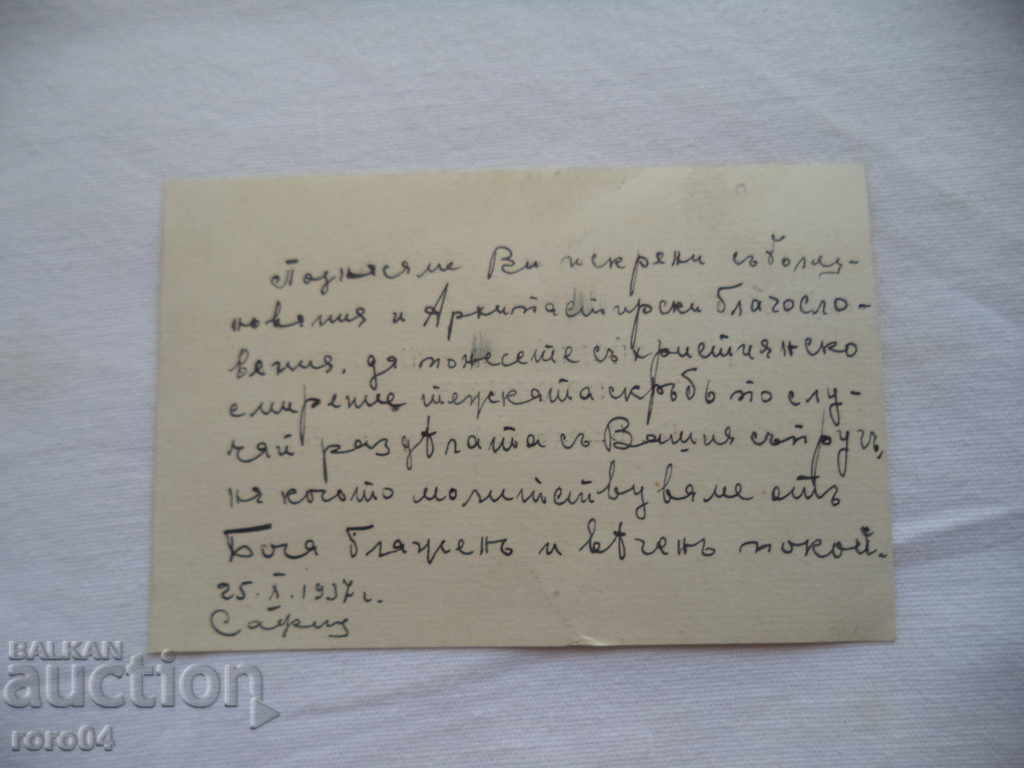 Поднасяме Ви искрени съболез-
нования и Архипастирски благосло-
вения, да понесете съ християнско
смирение тежката скръбь по слу-
чай раздѣлата съ Вашия съпругъ,
на когото молитствуваме отъ
Бога блаженъ и вѣченъ покой.
25.X.1937 г.
София
BALKAN
auction
roro04